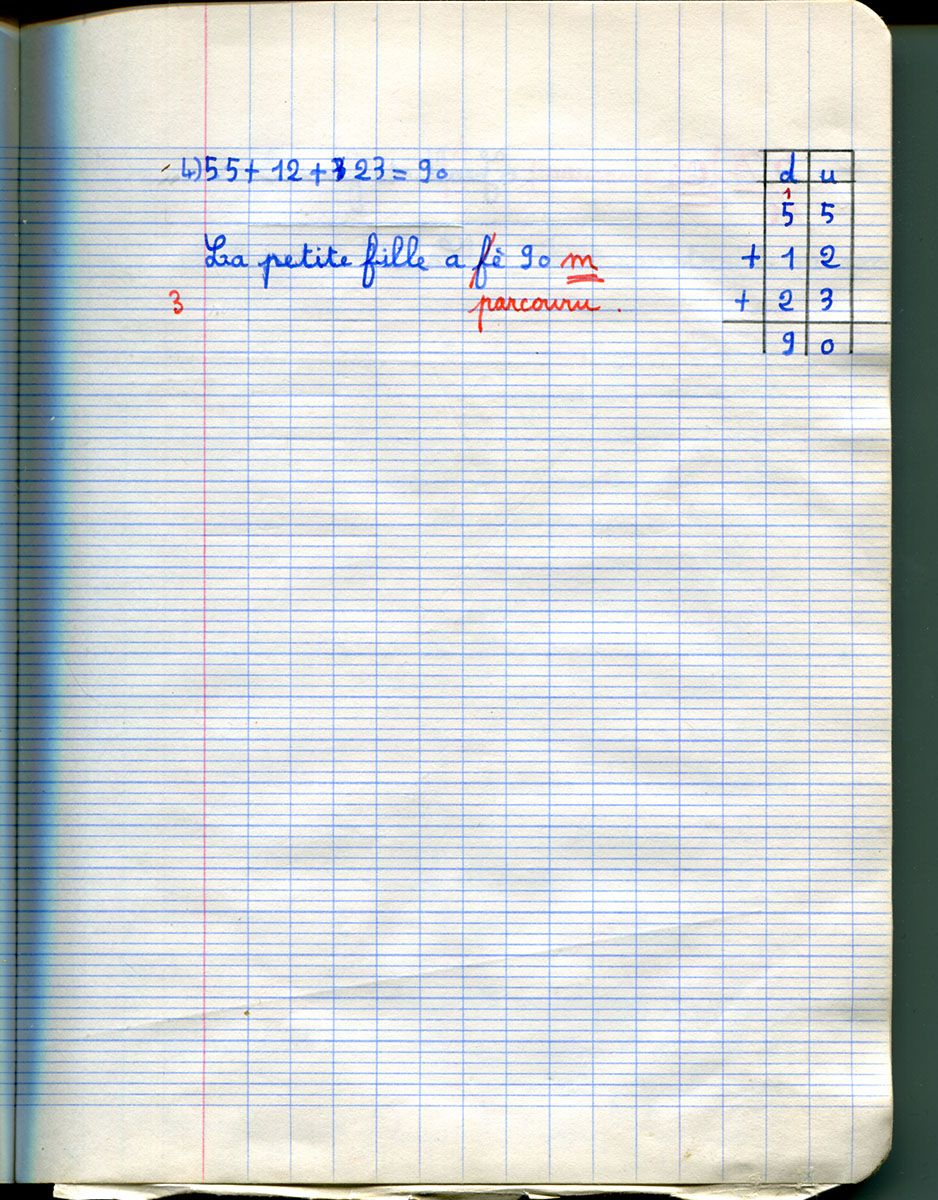 4) 55 + 12 + 23 = 90
La petite fille a fè 90 m
3 parcouru.
d u
1
5 5
+ 1 2
+ 2 3
9 0